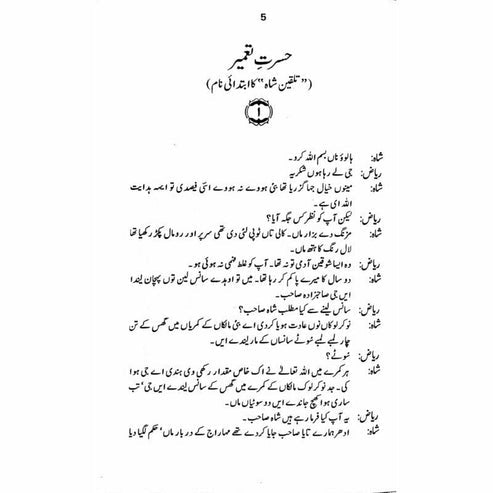 5
حسرتِ تعمیر
(”تلقین شاہ“ کا ابتدائی نام)
۱
شاہ: ہالوؤ ناں بسم اللہ کرو۔
ریاض: جی لے رہا ہوں شکریہ
شاہ: مینوں خیال جہا گزریا تھا بئی ہووے نہ ہووے اسّی فیصدی تو ایہہ ہدایت
اللہ ای ہے۔
ریاض: لیکن آپ کو نظر کس جگہ آیا؟
شاہ: مزنگ دے بزار ماں۔ کالی تاں ٹوپی لئی دی تھی سر پر اور رومال پکڑ رکھیا تھا
لال رنگ کا ہتھ ماں۔
ریاض: وہ ایسا شوقین آدمی تو نہ تھا۔ آپ کو غلط فہمی نہ ہوئی ہو۔
شاہ: دو سال کا میرے پا کم کر رہا تھا۔ میں تو اوہدے سانس لین توں پہچان لیندا
ایں جی صاحبزادہ صاحب۔
ریاض: سانس لینے سے کیا مطلب شاہ صاحب؟
شاہ: نوکر لوکاں نوں عادت ہویا کردی اے بئی مالکاں کے کمریاں میں گھس کے تن
چار لمبے لمبے سُوٹے سانساں کے مار لیندے ایں۔
ریاض: سُوٹے؟
شاہ: ہر کمرے میں اللہ تعالےٰ نے اک خاص مقدار رکھی دی ہندی اے جی ہوا
کی۔ جد نوکر لوک مالکاں کے کمرے میں گھس کے سانس لیندے ایں جی‘ تب
ساری ہوا کھچ جاندے ایں دو سوٹیاں ماں۔
ریاض: یہ آپ کیا فرما رہے ہیں شاہ صاحب۔
شاہ: ادھر ہمارے تایا صاحب جایا کردے تھے مہاراج کے دربار ماں‘ حکم لگیا دیا